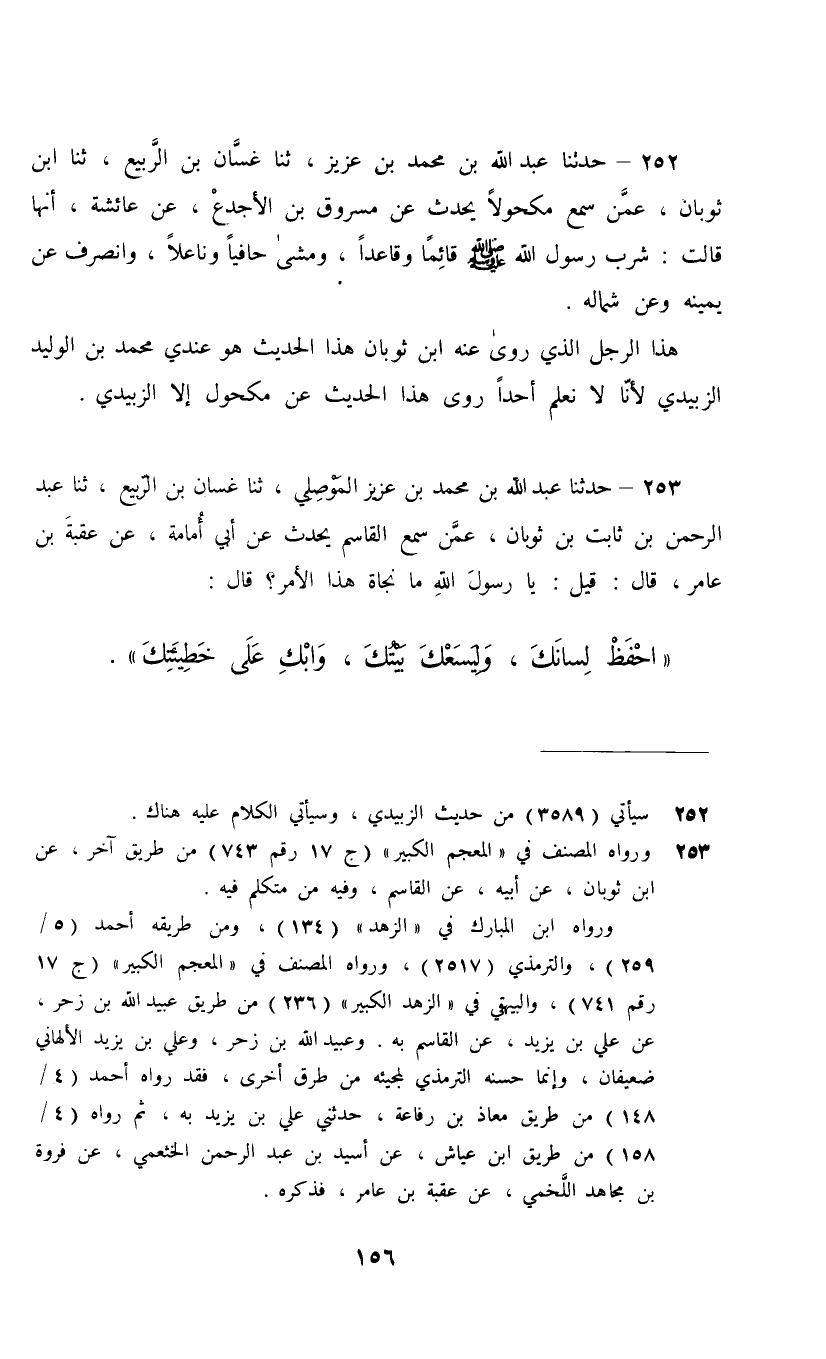 ٢٥٢ – حدثنا عبد الله بن محمد بن عزيز ، ثنا غسَّان بن الرَّبيع ، ثنا ابن
ثوبان ، عمَّن سمع مكحولاً يحدث عن مسروق بن الأجدعْ ، عن عائشة ، أنها
قالت : شرب رسول الله ﷺ قائِمًا وقاعداً ، ومشىٰ حافياً وناعلاً ، وانصرف عن
يمينه وعن شماله .
هذا الرجل الذي روىٰ عنه ابن ثوبان هذا الحديث هو عندي محمد بن الوليد
الزبيدي لأنّا لا نعلم أحداً روى هذا الحديث عن مكحول إلا الزبيدي .
٢٥٣ – حدثنا عبد الله بن محمد بن عزيز الموْصِلي ، ثنا غسان بن الرّبيع ، ثنا عبد
الرحمن بن ثابت بن ثوبان ، عمَّن سمع القاسم يحدث عن أبي أُمامة ، عن عقبةَ بن
عامر ، قال : قيل : يا رسولَ اللهِ ما نجاة هذا الأمر؟ قال :
« احْفَظْ لِسانَكَ ، وَلِيَسَعْكَ بَيْتُكَ ، وَابْكِ عَلَى خَطِيئَتِكَ» .
٢٥٢ سيأتي ( ٣٥٨٩ ) من حديث الزبيدي ، وسيأتي الكلام عليه هناك .
٢٥٣ ورواه المصنف في « المعجم الكبير» (ج ١٧ رقم ٧٤٣) من طريق آخر ، عن
ابن ثوبان ، عن أبيه ، عن القاسم ، وفيه من متكلم فيه .
ورواه ابن المبارك في «الزهد» ( ١٣٤ ) ، ومن طريقه أحمد ( ٥ /
٢٥٩ ) ، والترمذي ( ٢٥١٧ ) ، ورواه المصنف في «المعجم الكبير» (ج ١٧
رقم ٧٤١ ) ، والبيهقي في «الزهد الكبير» ( ٢٣٦ ) من طريق عبيد الله بن زحر ،
عن علي بن يزيد ، عن القاسم به . وعبيد الله بن زحر ، وعلي بن يزيد الألهاني
ضعيفان ، وإنما حسنه الترمذي لمجيئه من طرق أخرى ، فقد رواه أحمد ( ٤ /
١٤٨ ) من طريق معاذ بن رفاعة ، حدثني علي بن يزيد به ، ثم رواه ( ٤ /
١٥٨ ) من طريق ابن عياش ، عن أسيد بن عبد الرحمن الخثعمي ، عن فروة
بن مجاهد اللَّخمي ، عن عقبة بن عامر ، فذكره .
١٥٦